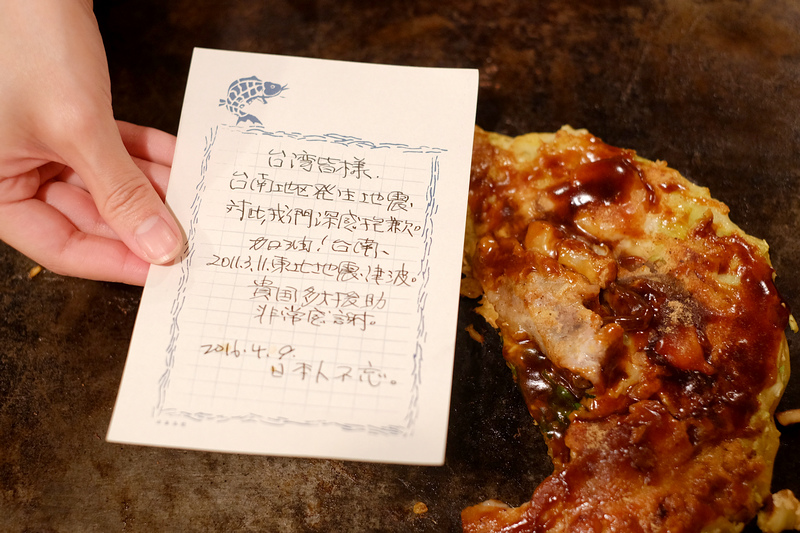 台湾皆様.
台南地区発生地震、
対此我們深感抱歉。
加油!台南、
2011.3.11.東北地震、津波。
貴国多々援助
非常感謝。
2016.4.9.
日本人不忘。